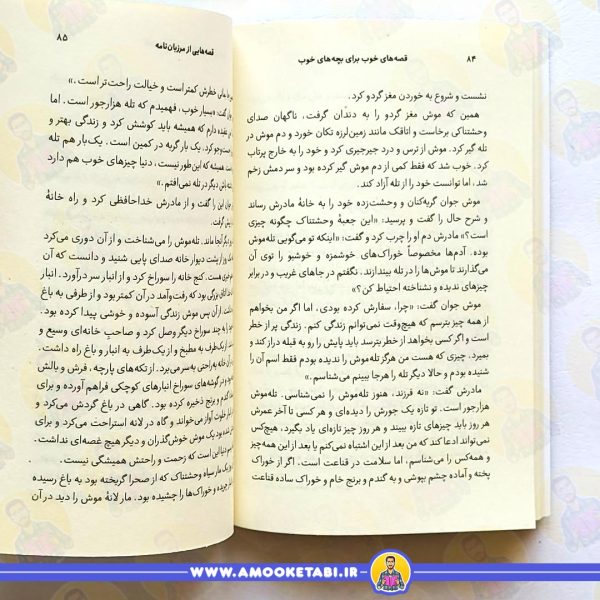 ۸۴
قصه‌های خوب برای بچه‌های خوب
نشست و شروع به خوردن مغز گردو کرد.
همین که موش مغز گردو را به دندان گرفت، ناگهان صدای
وحشتناکی برخاست و اتاقک مانند زمین‌لرزه تکان خورد و دم موش در
تله گیر کرد. موش از ترس و درد جیرجیری کرد و خود را به خارج پرتاب
کرد. خوب شد که فقط کمی از دم موش گیر کرده بود و سر دمش زخم
شد، اما توانست خود را از تله آزاد کند.
موش جوان گریه‌کنان و وحشت‌زده خود را به خانهٔ مادرش رساند
و شرح حال را گفت و پرسید: «این جعبهٔ وحشتناک چگونه چیزی
است؟» مادرش دم او را چرب کرد و گفت: «اینکه تو می‌گویی تله‌موش
بوده. آدم‌ها مخصوصاً خوراک‌های خوشمزه و خوشبو را توی آن
می‌گذارند تا موش‌ها را در تله بیندازند. نگفتم در جاهای غریب و در برابر
چیزهای ندیده و نشناخته احتیاط کن؟»
موش جوان گفت: «چرا، سفارش کرده بودی، اما اگر من بخواهم
از همه چیز بترسم که هیچ‌وقت نمی‌توانم زندگی کنم. زندگی پر از خطر
است و اگر کسی بخواهد از خطر بترسد باید پایش را رو به قبله دراز کند و
بمیرد. چیزی که هست من هرگز تله‌موش را ندیده بودم فقط اسم آن را
شنیده بودم و حالا دیگر تله را هرجا ببینم می‌شناسم.»
مادرش گفت: «نه فرزند، هنوز تله‌موش را نمی‌شناسی. تله‌موش
هزارجور است. تو تازه یک جورش را دیده‌ای و هر کسی تا آخر عمرش
هر روز باید چیزهای تازه ببیند و هر روز چیز تازه‌ای یاد بگیرد. هیچ‌کس
نمی‌تواند ادعا کند که من بعد از این اشتباه نمی‌کنم یا بعد از این همه‌چیز
و همه‌کس را می‌شناسم، اما سلامت در قناعت است. اگر از خوراک
پخته و آماده چشم بپوشی و به گندم و برنج خام و خوراک ساده قناعت
قصه‌هایی از مرزبان‌نامه
۸۵
خطرش کمتر است و خیالت راحت‌تر است.»
گفت: «بسیار خوب، فهمیدم که تله هزارجور است. اما
عقیده دارم که همیشه باید کوشش کرد و زندگی بهتر و
جست‌وجو کرد. یک بار گربه در کمین است. یک‌بار هم تله
همیشه که این‌طور نیست، دنیا چیزهای خوب هم دارد
دیگر در تله نمی‌افتم.»
این را گفت و از مادرش خداحافظی کرد و راه خانهٔ
گرفت.
دیگر آنجا ماند. تله‌موش را می‌شناخت و از آن دوری می‌کرد
از پشت دیوار خانه صدای پایی شنید و دانست که آن
است. کنج خانه را سوراخ کرد و از انبار سر درآورد. انبار
بزرگی بود که رفت‌وآمد در آن کمتر بود و از طرفی به باغ
از آن پس موش زندگی آسوده و خوشی پیدا کرده بود.
چند سوراخ دیگر وصل کرد و صاحب خانه‌ای وسیع و
از یک‌طرف به مطبخ و از یک‌طرف به انبار و باغ راه داشت.
آن خانه به راحتی به سر می‌برد. از تکه‌های پارچه، فرش و بالش
گوشه‌های سوراخ انبارهای کوچکی فراهم آورده و برای
و برنج ذخیره کرده بود. گاهی در باغ گردش می‌کرد و
خلوت آواز می‌خواند و گاه در لانه استراحت می‌کرد و برای
بود یک موش خوش‌گذران و دیگر هیچ غصه‌ای نداشت.
دنیا این است که زحمت و راحتش همیشگی نیست.
یک مار سیاه وحشتناک که از صحرا گریخته بود به باغ رسیده
چریده و خوراک‌ها را چشیده بود. مار لانهٔ موش را دید در آن
WWW.AMOOKETABI.IR